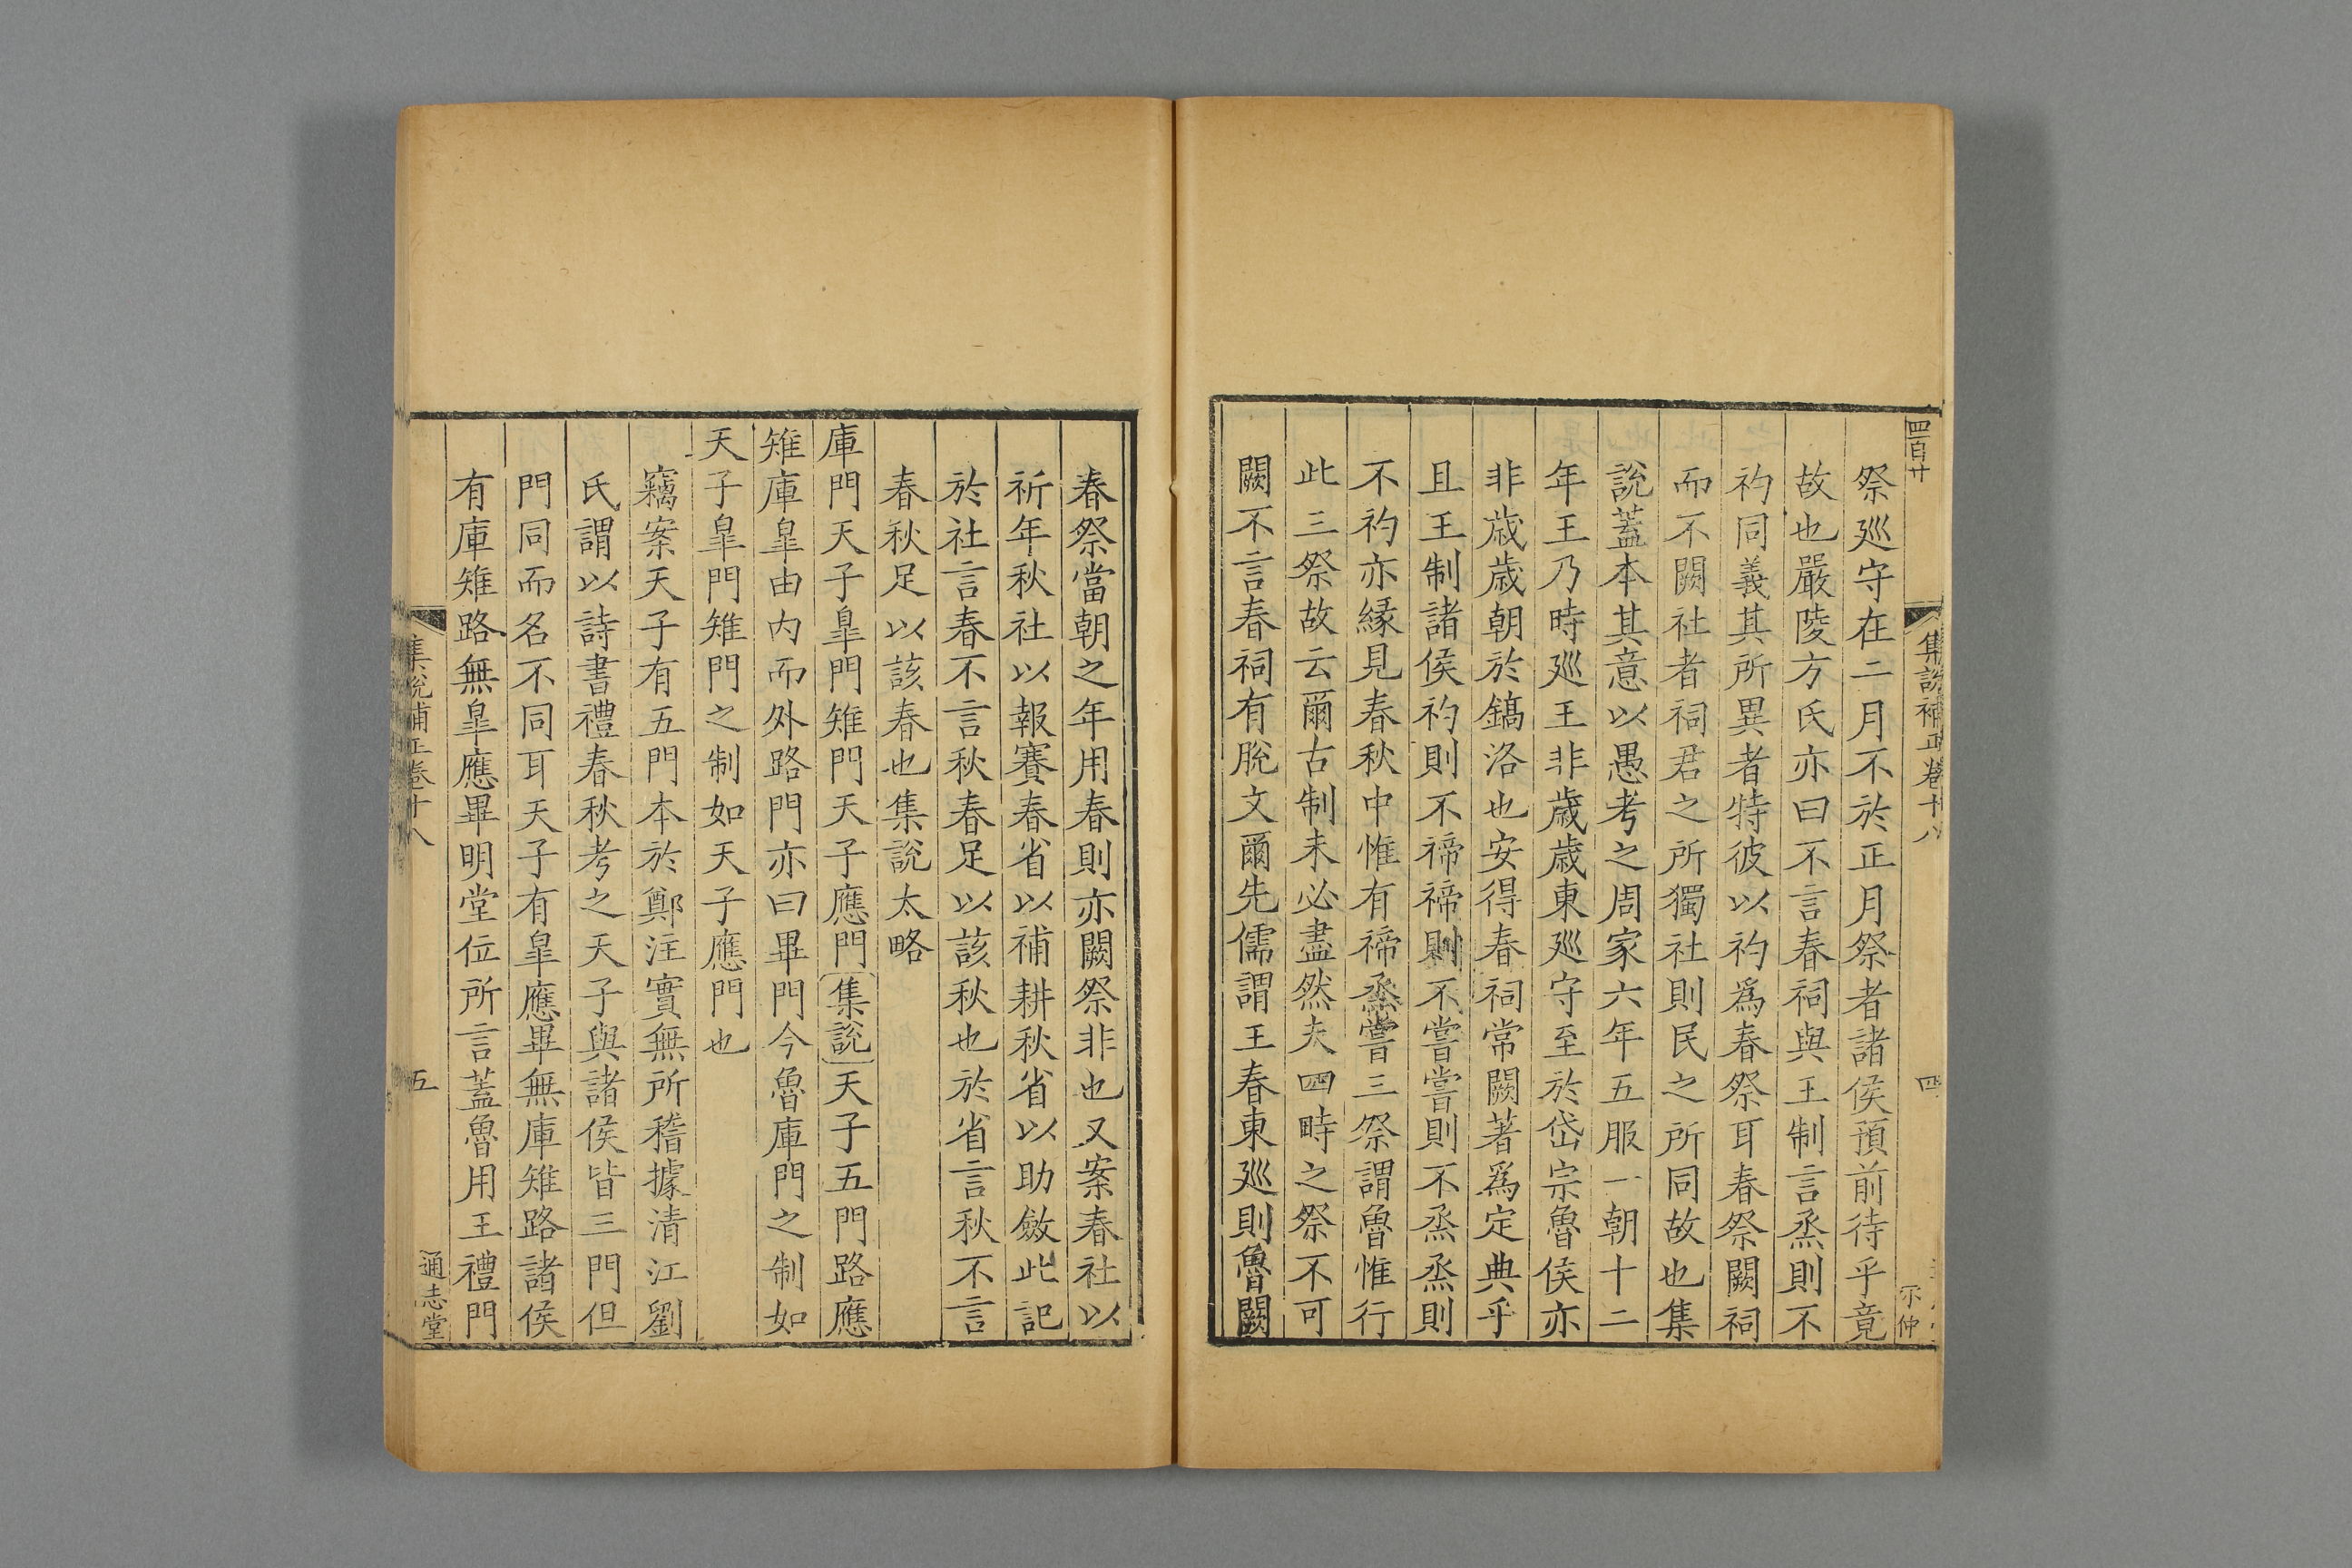 四百廿
集說補正卷十八
四
祭廵守在二月不於正月祭者諸侯預前待乎竟
故也嚴陵方氏亦曰不言春祠與王制言烝則不
礿同義其所異者特彼以礿爲春祭耳春祭闕祠
而不闕社者祠君之所獨社則民之所同故也集
說蓋本其意以愚考之周家六年五服一朝十二
年王乃時廵王非歳歳東廵守至於岱宗魯侯亦
非歳歳朝於鎬洛也安得春祠常闕著爲定典乎
且王制諸侯礿則不禘禘則不嘗嘗則不烝烝則
不礿亦緣見春秋中惟有禘烝嘗三祭謂魯惟行
此三祭故云爾古制未必盡然夫四時之祭不可
闕不言春祠有脫文爾先儒謂王春東廵則魯闕
春祭當朝之年用春則亦闕祭非也又案春社以
祈年秋社以報賽春省以補耕秋省以助斂此記
於社言春不言秋春足以該秋也於省言秋不言
春秋足以該春也集說太略
庫門天子臯門雉門天子應門集說天子五門路應
雉庫臯由内而外路門亦曰畢門今魯庫門之制如
天子臯門雉門之制如天子應門也
竊案天子有五門本於鄭注實無所稽據清江劉
氏謂以詩書禮春秋考之天子與諸侯皆三門但
門同而名不同耳天子有臯應畢無庫雉路諸侯
有庫雉路無臯應畢明堂位所言蓋魯用王禮門
集說補正卷十八
五
通志堂